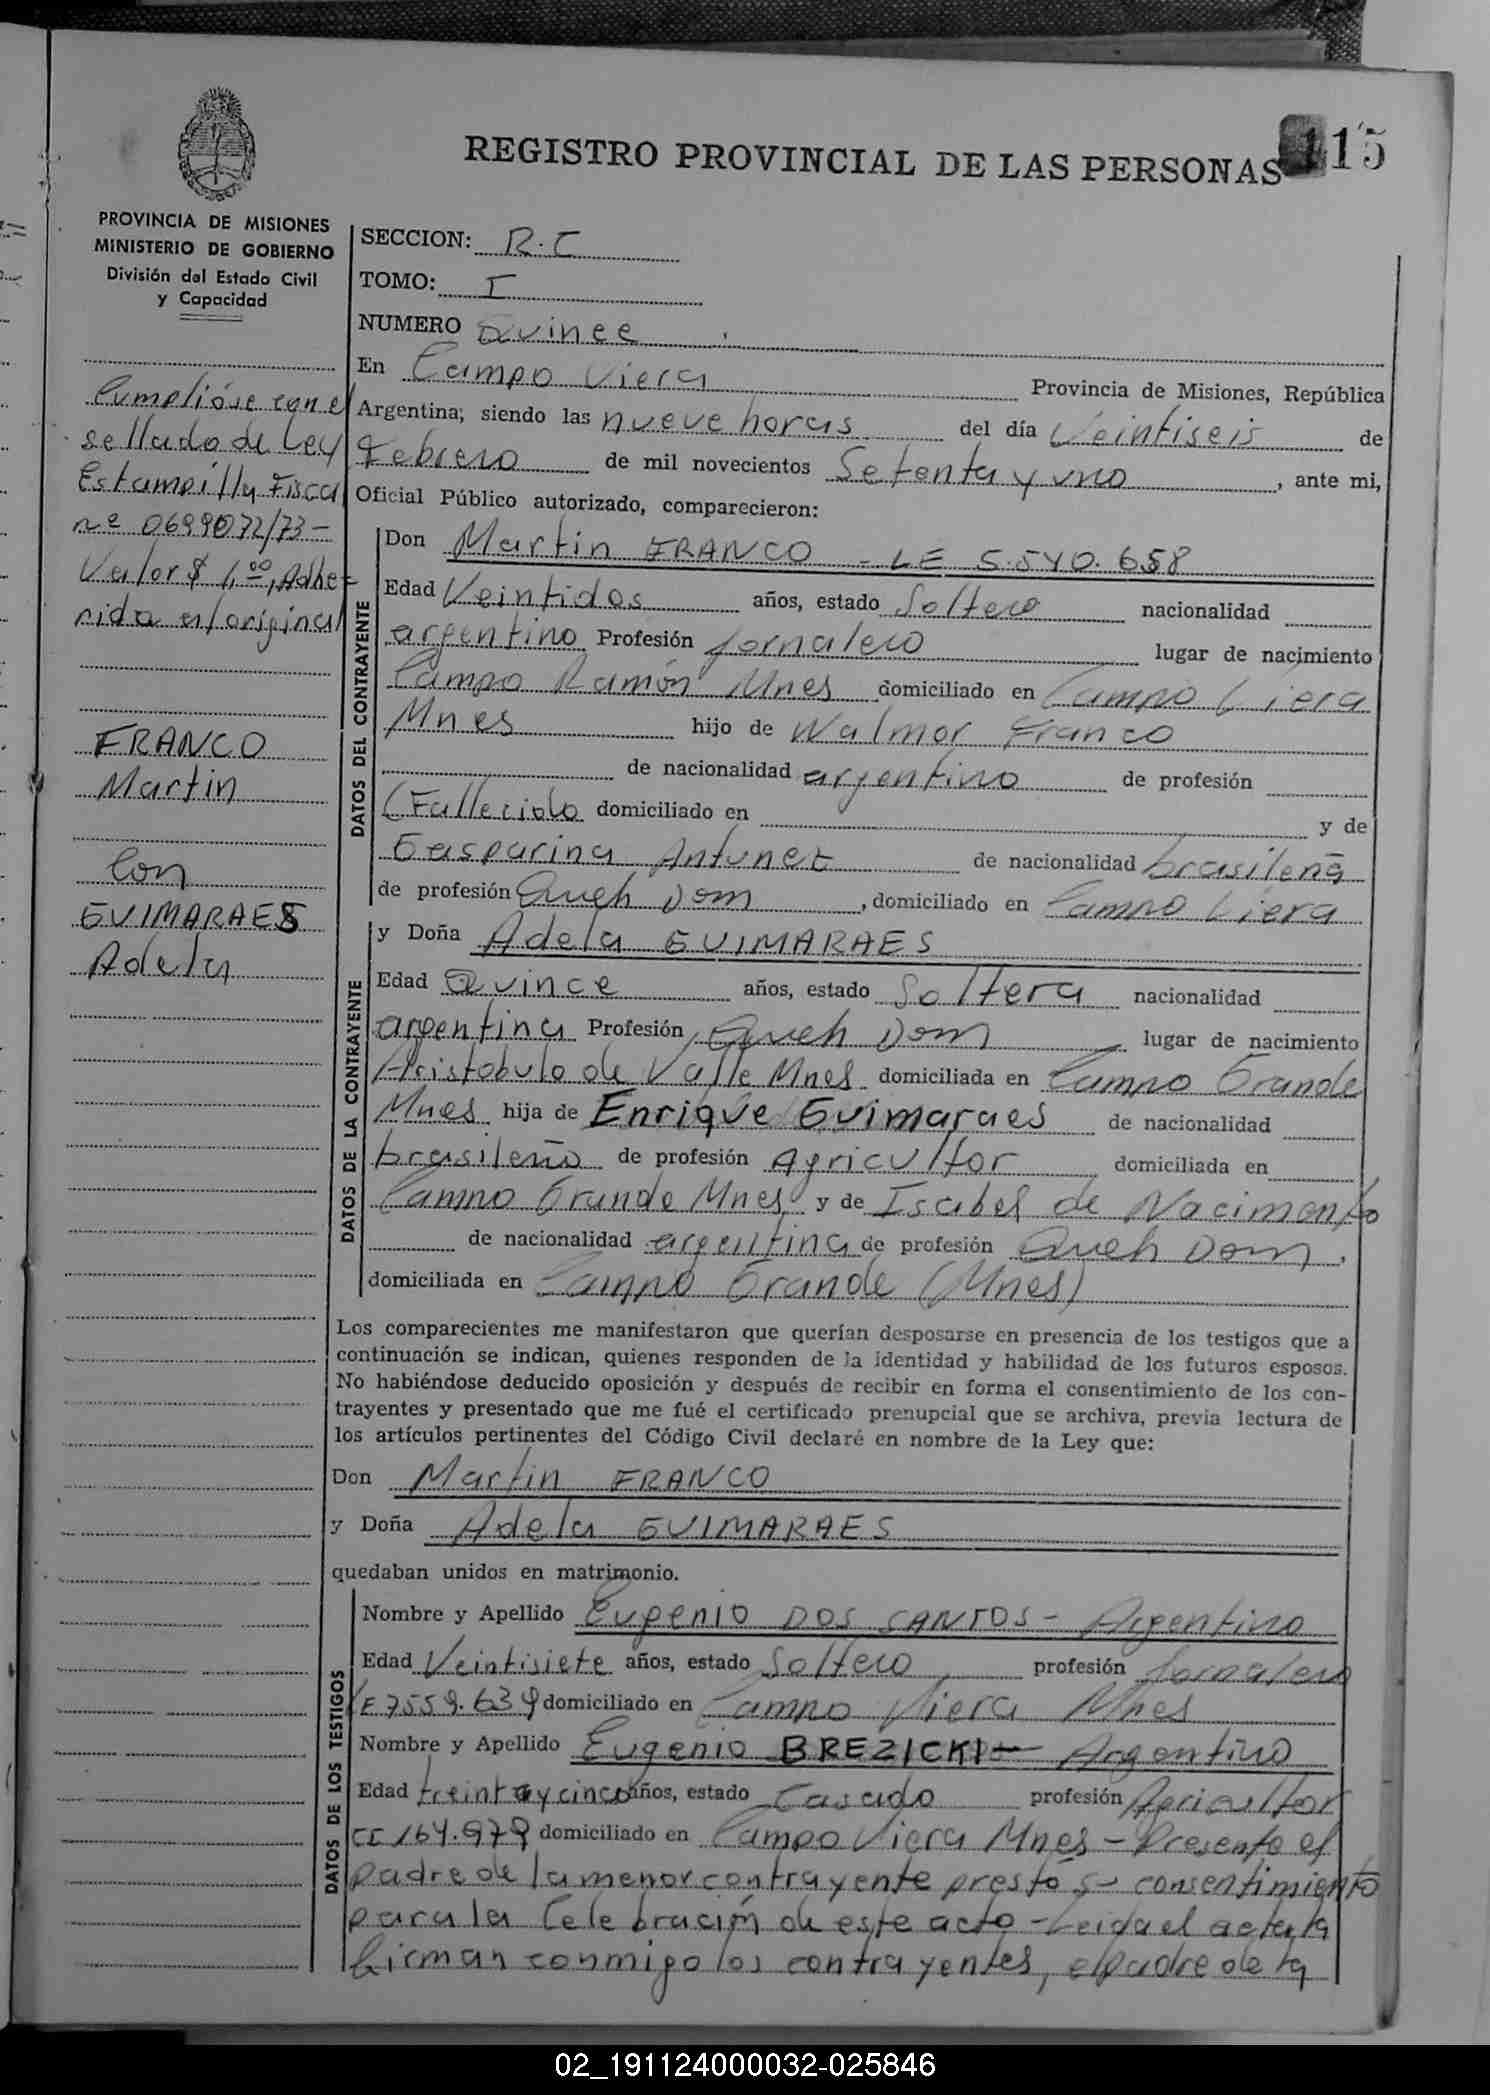 115
REGISTRO PROVINCIAL DE LAS PERSONAS
PROVINCIA DE MISIONES
MINISTERIO DE GOBIERNO
División del Estado Civil
y Capacidad
Cumplióse con el
sellado de Ley
Estampilla Fiscal
nº 0699072/73-
Valor $ 1,00, Adhe-
rida en original
FRANCO
Martin
Con
GUIMARAES
Adela
SECCION: R.C
TOMO: I
NUMERO Quince
En Campo Viera Provincia de Misiones, República
Argentina; siendo las nueve horas del día Veintiseis de
Febrero de mil novecientos Setenta y uno, ante mi,
Oficial Público autorizado, comparecieron:
DATOS DEL CONTRAYENTE
Don Martin FRANCO - LE 5.540.658
Edad Veintidos años, estado Soltero nacionalidad
argentino Profesión Jornalero lugar de nacimiento
Campo Ramón Mnes domiciliado en Campo Viera
Mnes hijo de Walmor Franco
de nacionalidad argentino de profesión
(Fallecido domiciliado en y de
Gasparina Antunez de nacionalidad brasileña
de profesión Queh Dom, domiciliado en Campo Viera
DATOS DE LA CONTRAYENTE
y Doña Adela GUIMARAES
Edad Quince años, estado Soltera nacionalidad
argentina Profesión Queh Dom lugar de nacimiento
Aristobulo de Valle Mnes domiciliada en Campo Grande
Mnes hija de Enrique Guimaraes de nacionalidad
brasileño de profesión Agricultor domiciliada en
Campo Grande Mnes y de Isabel de Nacimento
de nacionalidad argentina de profesión Queh Dom,
domiciliada en Campo Grande (Mnes)
Los comparecientes me manifestaron que querían desposarse en presencia de los testigos que a
continuación se indican, quienes responden de la identidad y habilidad de los futuros esposos.
No habiéndose deducido oposición y después de recibir en forma el consentimiento de los con-
trayentes y presentado que me fué el certificado prenupcial que se archiva, previa lectura de
los artículos pertinentes del Código Civil declaré en nombre de la Ley que:
Don Martin FRANCO
y Doña Adela GUIMARAES
quedaban unidos en matrimonio.
DATOS DE LOS TESTIGOS
Nombre y Apellido Eugenio DOS SANTOS - Argentino
Edad Veintisiete años, estado Soltero profesión Jornalero
LE 7559.639 domiciliado en Campo Viera Mnes
Nombre y Apellido Eugenio BREZICKI - Argentino
Edad treinta y cinco años, estado Casado profesión Agricultor
CI 164.979 domiciliado en Campo Viera Mnes - Presente el
padre de la menor contrayente prestó su consentimiento
para la Celebración de este acto - Leida el acta, la
firman conmigo los contrayentes, el padre de la
02_191124000032-025846